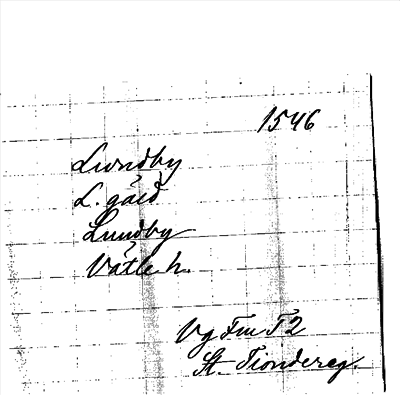 1546
Lundby
L. gärd
Lundby
Vätle h.
Vg Fm T.2
St. Tiondereg.